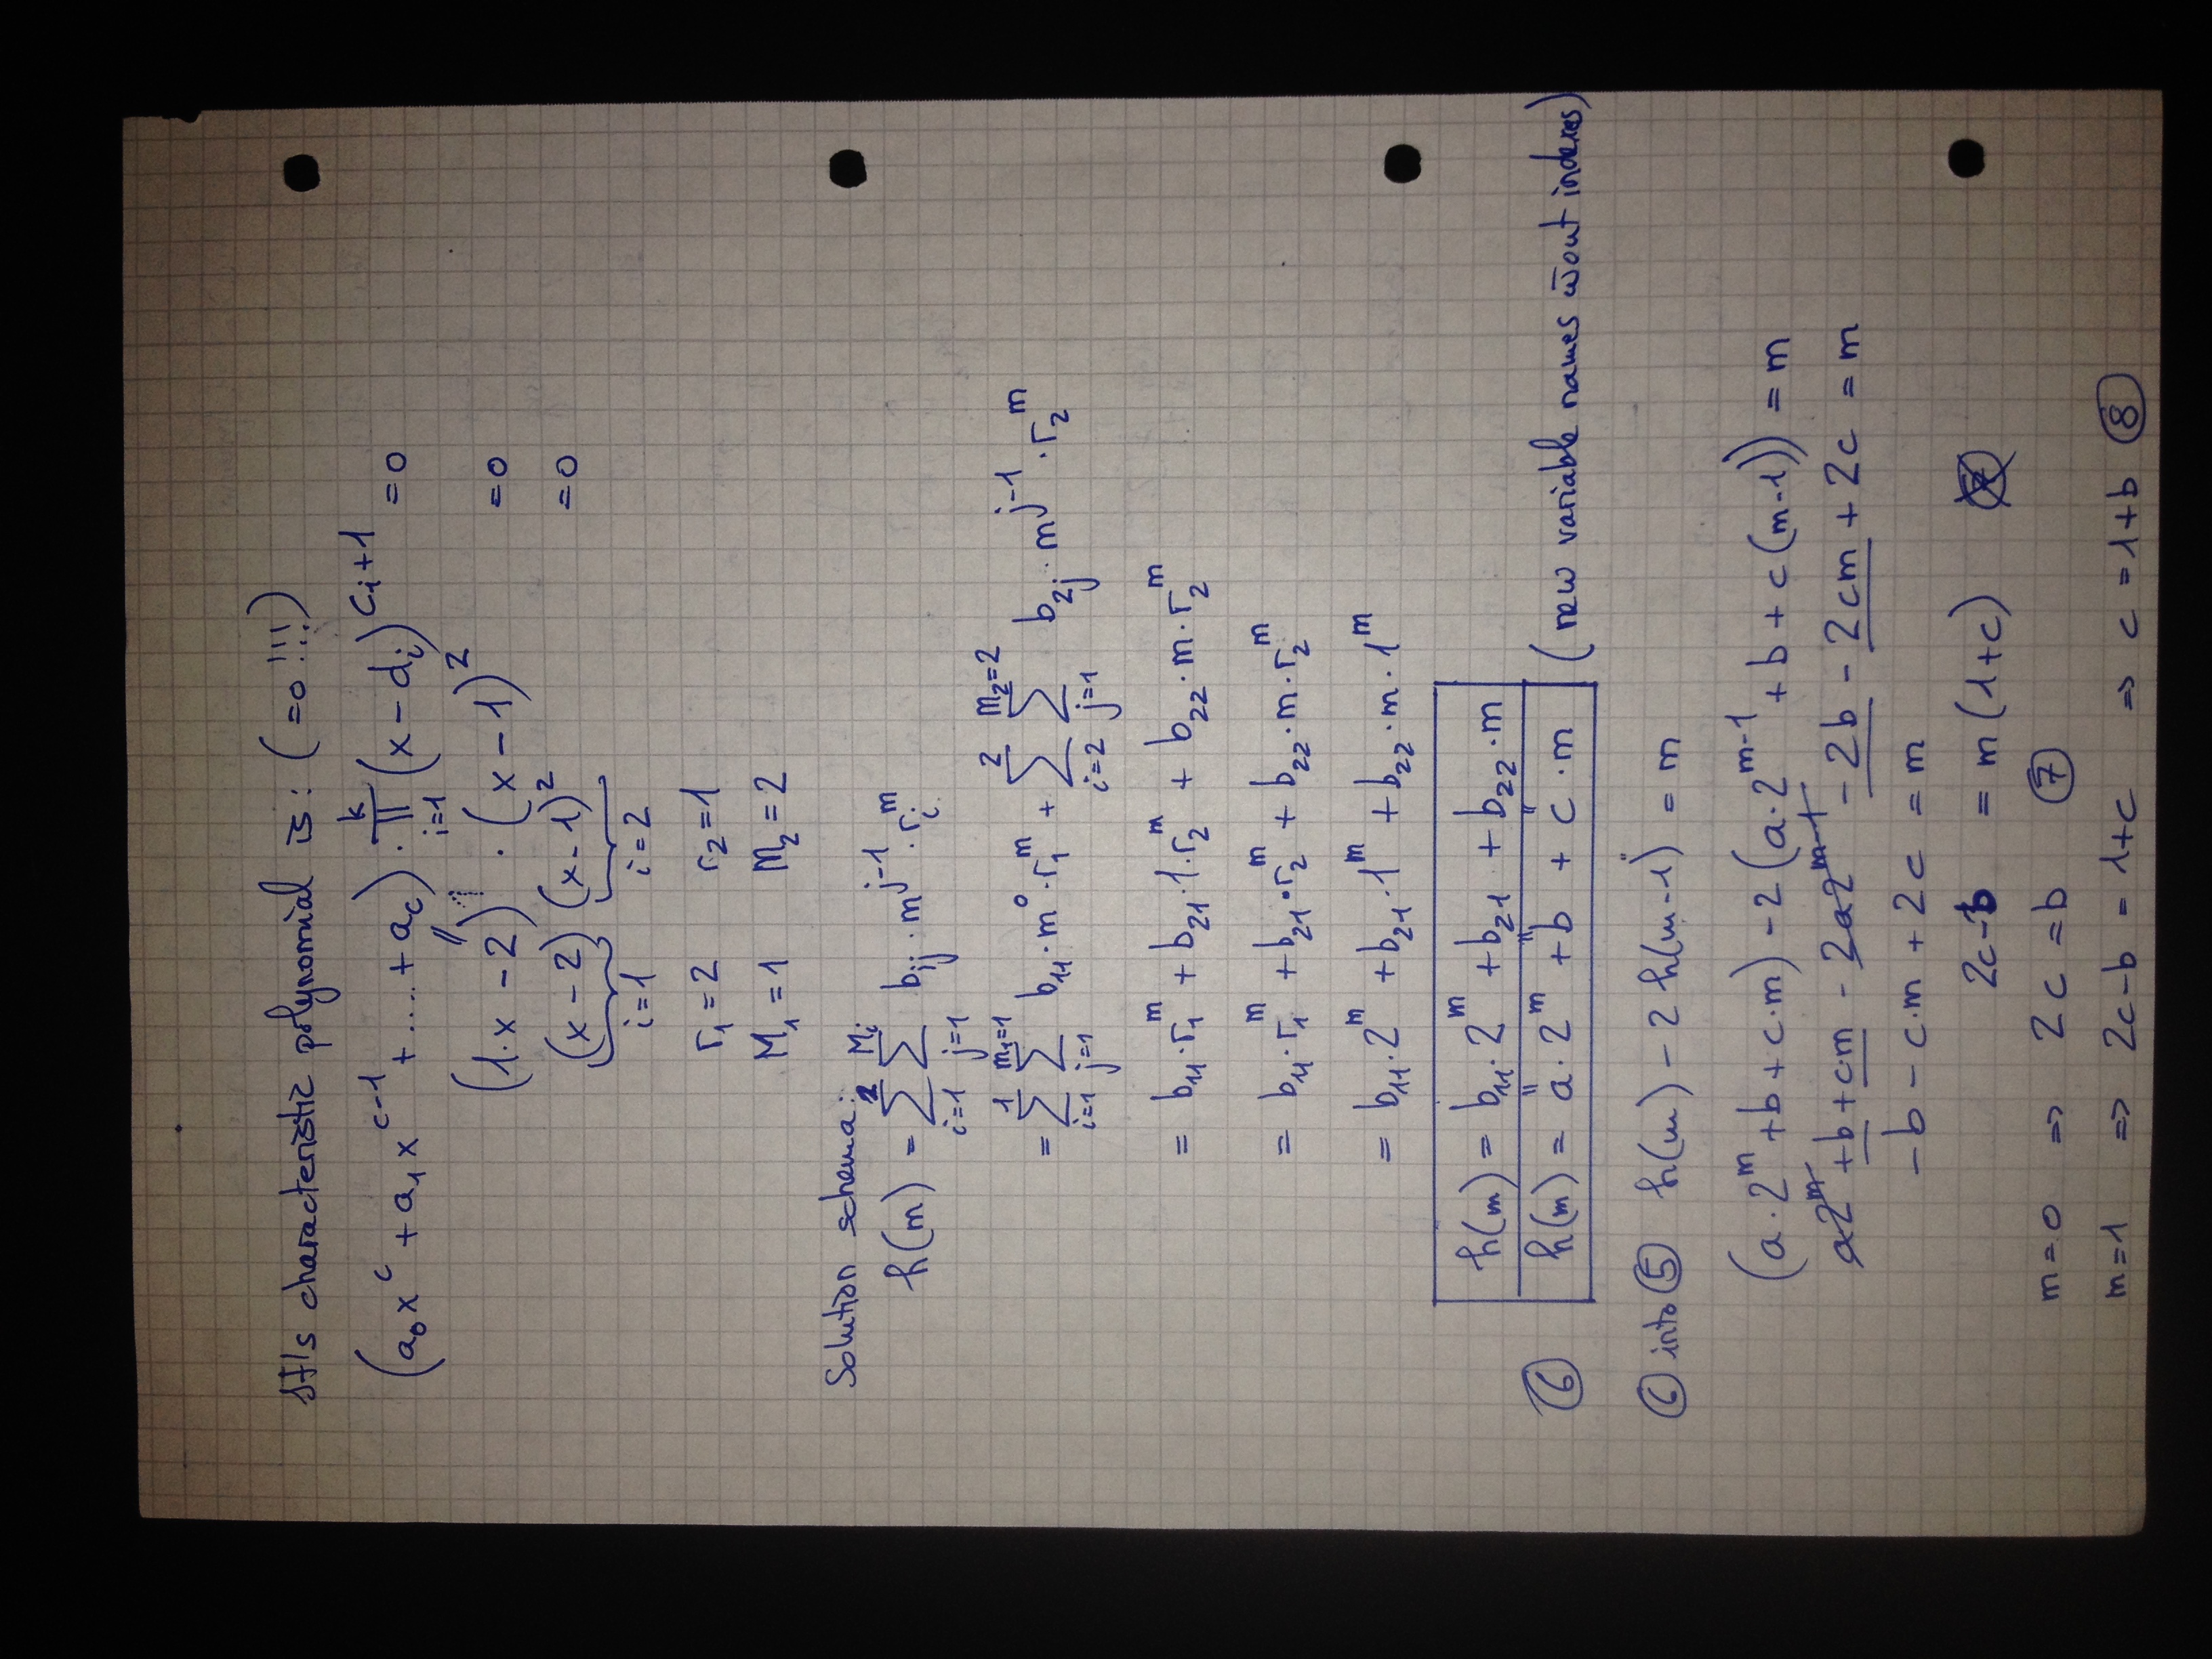 It's characteristic polynomial is: (=0 !!!)
(a₀x^c + a₁x^(c-1) + .... + a_c) · ∏_{i=1}^{k} (x - d_i)^(c_i+1) = 0
(1·x - 2)^1 · (x - 1)^2 = 0
(x - 2) (x - 1)^2 = 0
i=1 i=2
r₁ = 2 r₂ = 1
M₁ = 1 M₂ = 2
Solution schema:
h(m) = ∑_{i=1}^{2} ∑_{j=1}^{M_i} b_ij · m^(j-1) · r_i^m
= ∑_{i=1}^{1} ∑_{j=1}^{m₁=1} b₁₁ · m^0 · r₁^m + ∑_{i=2}^{2} ∑_{j=1}^{m₂=2} b_2j · m^(j-1) · r₂^m
= b₁₁ · r₁^m + b₂₁ · 1 · r₂^m + b₂₂ · m · r₂^m
= b₁₁ · r₁^m + b₂₁ · r₂^m + b₂₂ · m · r₂^m
= b₁₁ · 2^m + b₂₁ · 1^m + b₂₂ · m · 1^m
h(m) = b₁₁ · 2^m + b₂₁ + b₂₂ · m
⑥ h(m) = a · 2^m + b + c · m (new variable names w̄out indexes)
⑥ into ⑤ h(m) - 2 h(m-1) = m
(a · 2^m + b + c · m) - 2 (a · 2^(m-1) + b + c (m-1)) = m
a2^m + b + c·m - 2a2^(m-1) - 2b - 2cm + 2c = m
-b - c·m + 2c = m
2c - b = m (1+c)
m = 0 => 2c = b ⑦
m = 1 => 2c - b = 1+c => c = 1+b ⑧